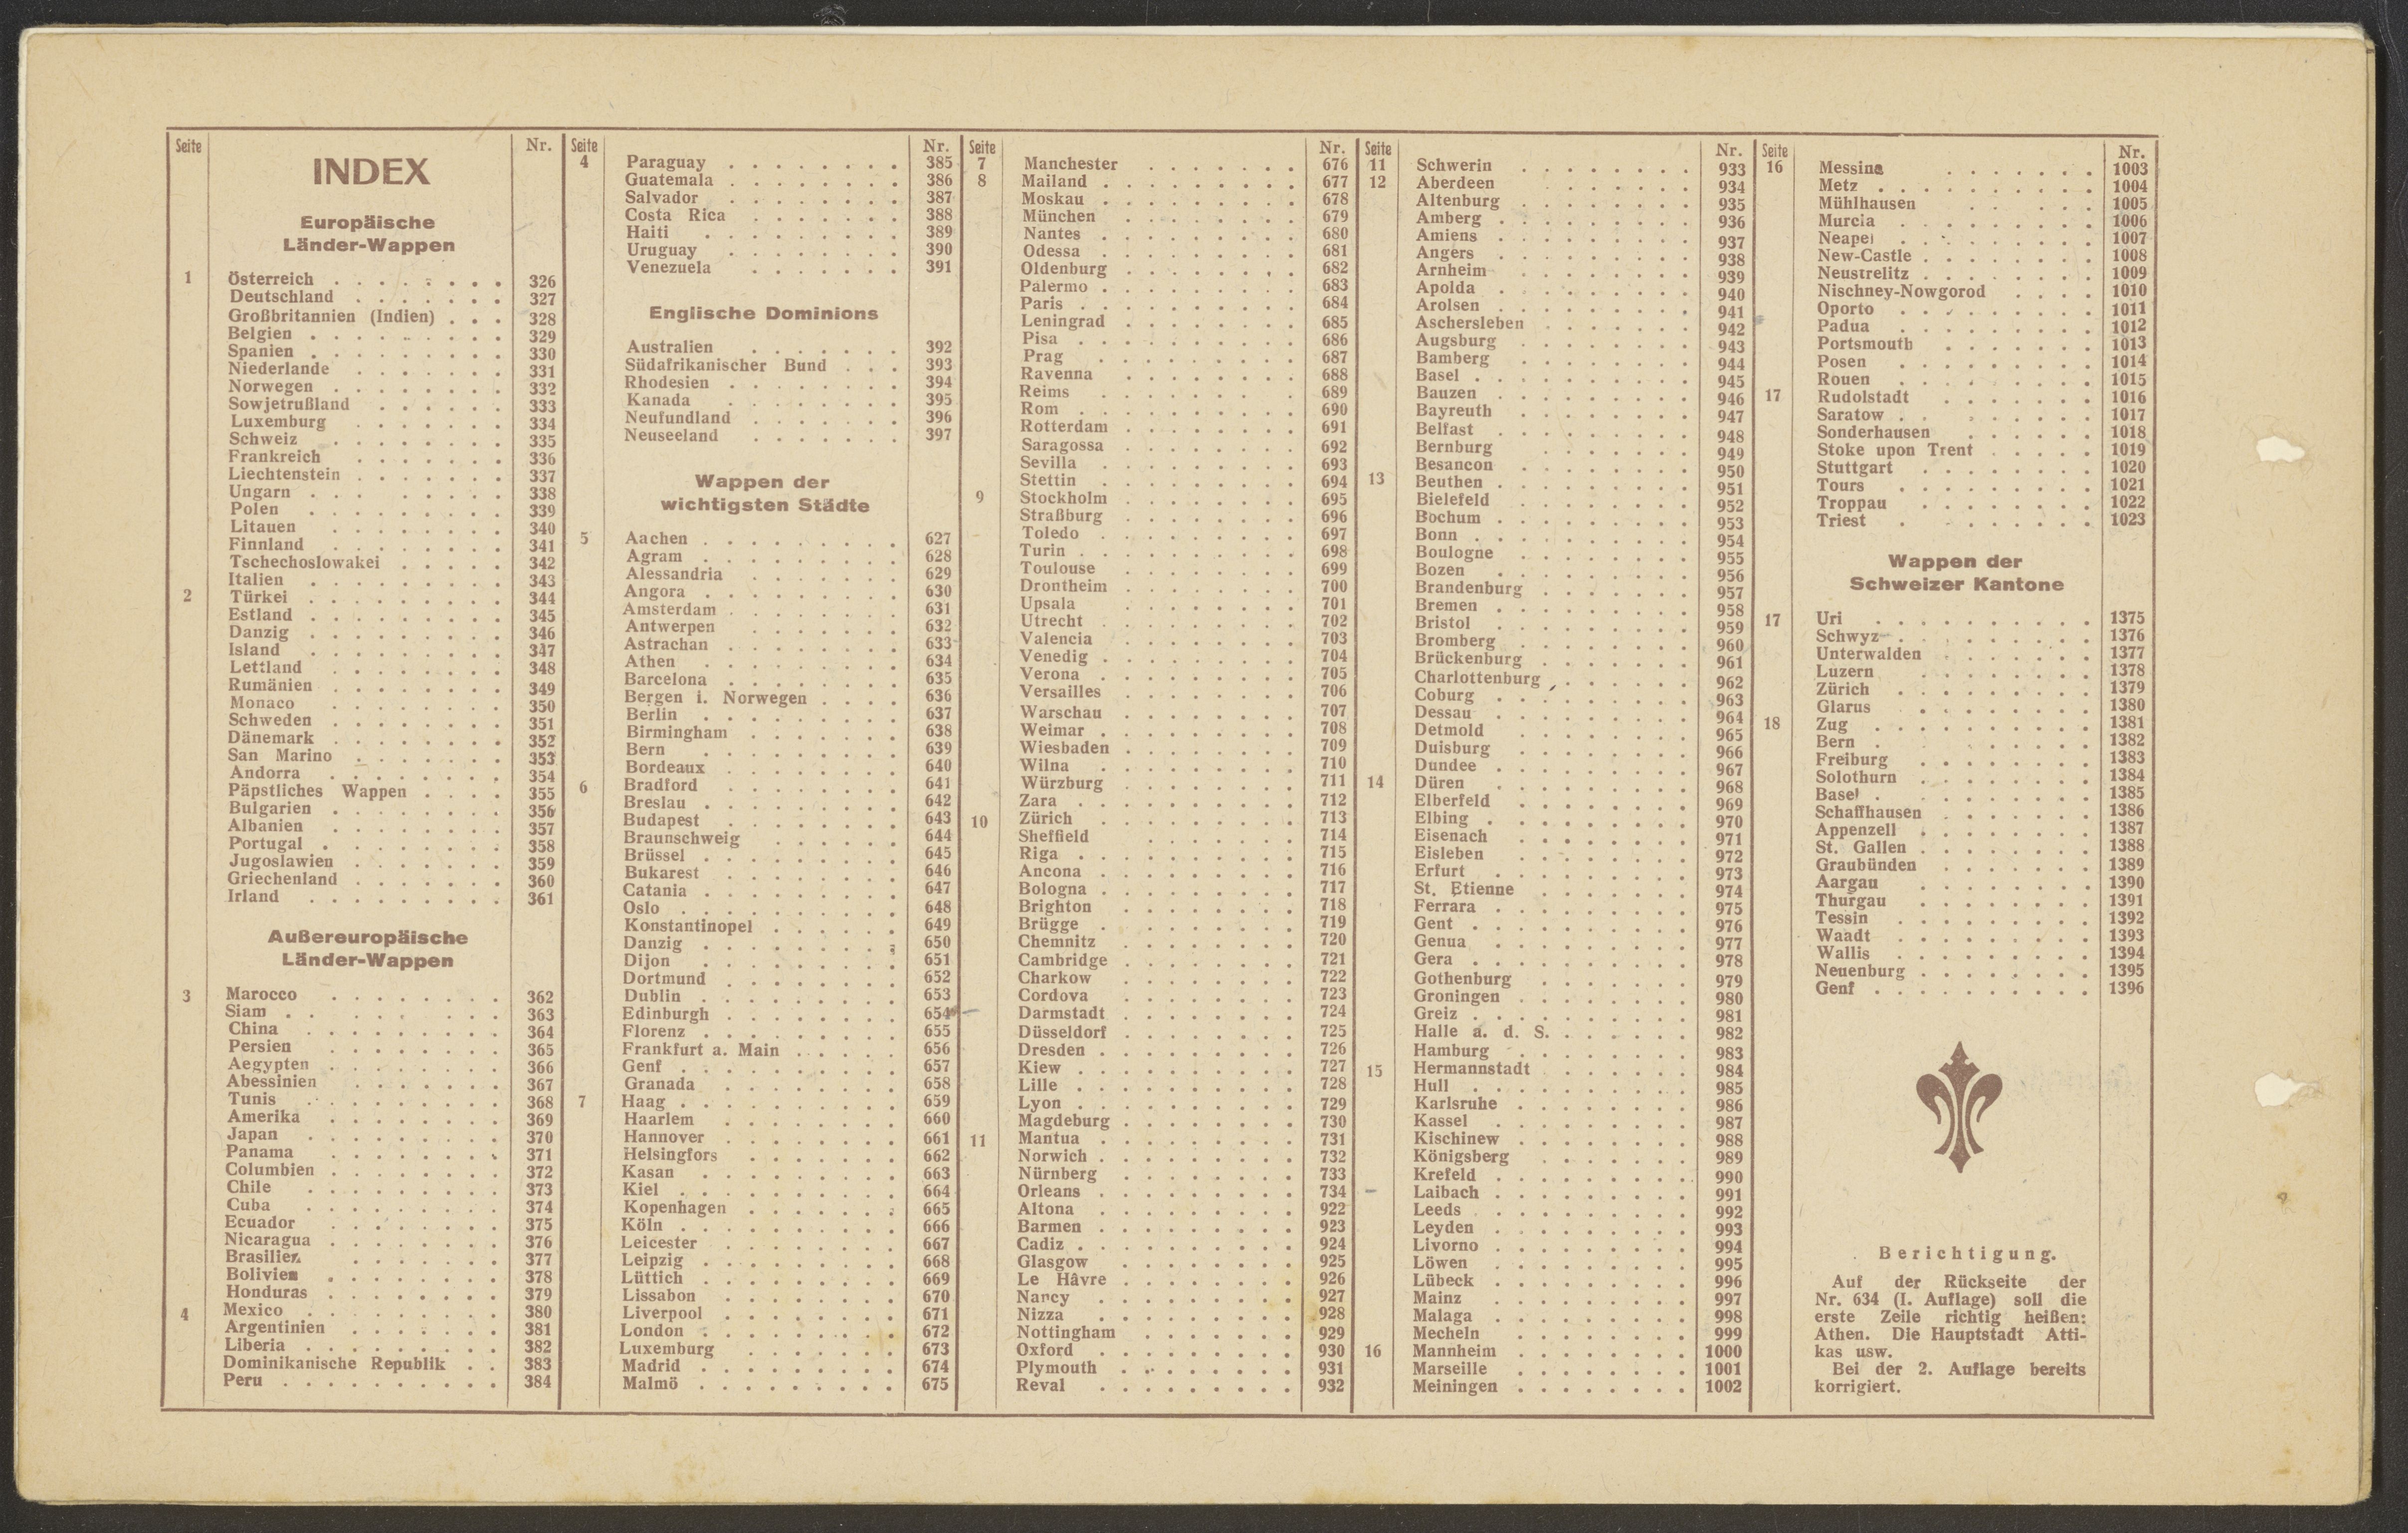 Seite
Nr.
INDEX
Europäische
Länder-Wappen
1 Österreich 326
Deutschland 327
Großbritannien (Indien) 328
Belgien 329
Spanien 330
Niederlande 331
Norwegen 332
Sowjetrußland 333
Luxemburg 334
Schweiz 335
Frankreich 336
Liechtenstein 337
Ungarn 338
Polen 339
Litauen 340
Finnland 341
Tschechoslowakei 342
Italien 343
2 Türkei 344
Estland 345
Danzig 346
Island 347
Lettland 348
Rumänien 349
Monaco 350
Schweden 351
Dänemark 352
San Marino 353
Andorra 354
Päpstliches Wappen 355
Bulgarien 356
Albanien 357
Portugal 358
Jugoslawien 359
Griechenland 360
Irland 361
Außereuropäische
Länder-Wappen
3 Marocco 362
Siam 363
China 364
Persien 365
Aegypten 366
Abessinien 367
Tunis 368
Amerika 369
Japan 370
Panama 371
Columbien 372
Chile 373
Cuba 374
Ecuador 375
Nicaragua 376
Brasilien 377
Bolivien 378
Honduras 379
4 Mexico 380
Argentinien 381
Liberia 382
Dominikanische Republik 383
Peru 384
Seite
Nr.
4 Paraguay 385
Guatemala 386
Salvador 387
Costa Rica 388
Haiti 389
Uruguay 390
Venezuela 391
Englische Dominions
Australien 392
Südafrikanischer Bund 393
Rhodesien 394
Kanada 395
Neufundland 396
Neuseeland 397
Wappen der
wichtigsten Städte
5 Aachen 627
Agram 628
Alessandria 629
Angora 630
Amsterdam 631
Antwerpen 632
Astrachan 633
Athen 634
Barcelona 635
Bergen i. Norwegen 636
Berlin 637
Birmingham 638
Bern 639
Bordeaux 640
6 Bradford 641
Breslau 642
Budapest 643
Braunschweig 644
Brüssel 645
Bukarest 646
Catania 647
Oslo 648
Konstantinopel 649
Danzig 650
Dijon 651
Dortmund 652
Dublin 653
Edinburgh 654
Florenz 655
Frankfurt a. Main 656
Genf 657
Granada 658
7 Haag 659
Haarlem 660
Hannover 661
Helsingfors 662
Kasan 663
Kiel 664
Kopenhagen 665
Köln 666
Leicester 667
Leipzig 668
Lüttich 669
Lissabon 670
Liverpool 671
London 672
Luxemburg 673
Madrid 674
Malmö 675
Seite
Nr.
7 Manchester 676
8 Mailand 677
Moskau 678
München 679
Nantes 680
Odessa 681
Oldenburg 682
Palermo 683
Paris 684
Leningrad 685
Pisa 686
Prag 687
Ravenna 688
Reims 689
Rom 690
Rotterdam 691
Saragossa 692
Sevilla 693
Stettin 694
9 Stockholm 695
Straßburg 696
Toledo 697
Turin 698
Toulouse 699
Drontheim 700
Upsala 701
Utrecht 702
Valencia 703
Venedig 704
Verona 705
Versailles 706
Warschau 707
Weimar 708
Wiesbaden 709
Wilna 710
Würzburg 711
Zara 712
10 Zürich 713
Sheffield 714
Riga 715
Ancona 716
Bologna 717
Brighton 718
Brügge 719
Chemnitz 720
Cambridge 721
Charkow 722
Cordova 723
Darmstadt 724
Düsseldorf 725
Dresden 726
Kiew 727
Lille 728
Lyon 729
Magdeburg 730
11 Mantua 731
Norwich 732
Nürnberg 733
Orleans 734
Altona 922
Barmen 923
Cadiz 924
Glasgow 925
Le Hâvre 926
Nancy 927
Nizza 928
Nottingham 929
Oxford 930
Plymouth 931
Reval 932
Seite
Nr.
11 Schwerin 933
12 Aberdeen 934
Altenburg 935
Amberg 936
Amiens 937
Angers 938
Arnheim 939
Apolda 940
Arolsen 941
Aschersleben 942
Augsburg 943
Bamberg 944
Basel 945
Bauzen 946
Bayreuth 947
Belfast 948
Bernburg 949
Besancon 950
13 Beuthen 951
Bielefeld 952
Bochum 953
Bonn 954
Boulogne 955
Bozen 956
Brandenburg 957
Bremen 958
Bristol 959
Bromberg 960
Brückenburg 961
Charlottenburg 962
Coburg 963
Dessau 964
Detmold 965
Duisburg 966
Dundee 967
14 Düren 968
Elberfeld 969
Elbing 970
Eisenach 971
Eisleben 972
Erfurt 973
St. Etienne 974
Ferrara 975
Gent 976
Genua 977
Gera 978
Gothenburg 979
Groningen 980
Greiz 981
Halle a. d. S. 982
Hamburg 983
15 Hermannstadt 984
Hull 985
Karlsruhe 986
Kassel 987
Kischinew 988
Königsberg 989
Krefeld 990
Laibach 991
Leeds 992
Leyden 993
Livorno 994
Löwen 995
Lübeck 996
Mainz 997
Malaga 998
Mecheln 999
16 Mannheim 1000
Marseille 1001
Meiningen 1002
Seite
Nr.
16 Messina 1003
Metz 1004
Mühlhausen 1005
Murcia 1006
Neapel 1007
New-Castle 1008
Neustrelitz 1009
Nischney-Nowgorod 1010
Oporto 1011
Padua 1012
Portsmouth 1013
Posen 1014
Rouen 1015
17 Rudolstadt 1016
Saratow 1017
Sonderhausen 1018
Stoke upon Trent 1019
Stuttgart 1020
Tours 1021
Troppau 1022
Triest 1023
Wappen der
Schweizer Kantone
17 Uri 1375
Schwyz 1376
Unterwalden 1377
Luzern 1378
Zürich 1379
Glarus 1380
18 Zug 1381
Bern 1382
Freiburg 1383
Solothurn 1384
Basel 1385
Schaffhausen 1386
Appenzell 1387
St. Gallen 1388
Graubünden 1389
Aargau 1390
Thurgau 1391
Tessin 1392
Waadt 1393
Wallis 1394
Neuenburg 1395
Genf 1396
Berichtigung.
Auf der Rückseite der
Nr. 634 (I. Auflage) soll die
erste Zeile richtig heißen:
Athen. Die Hauptstadt Atti-
kas usw.
Bei der 2. Auflage bereits
korrigiert.